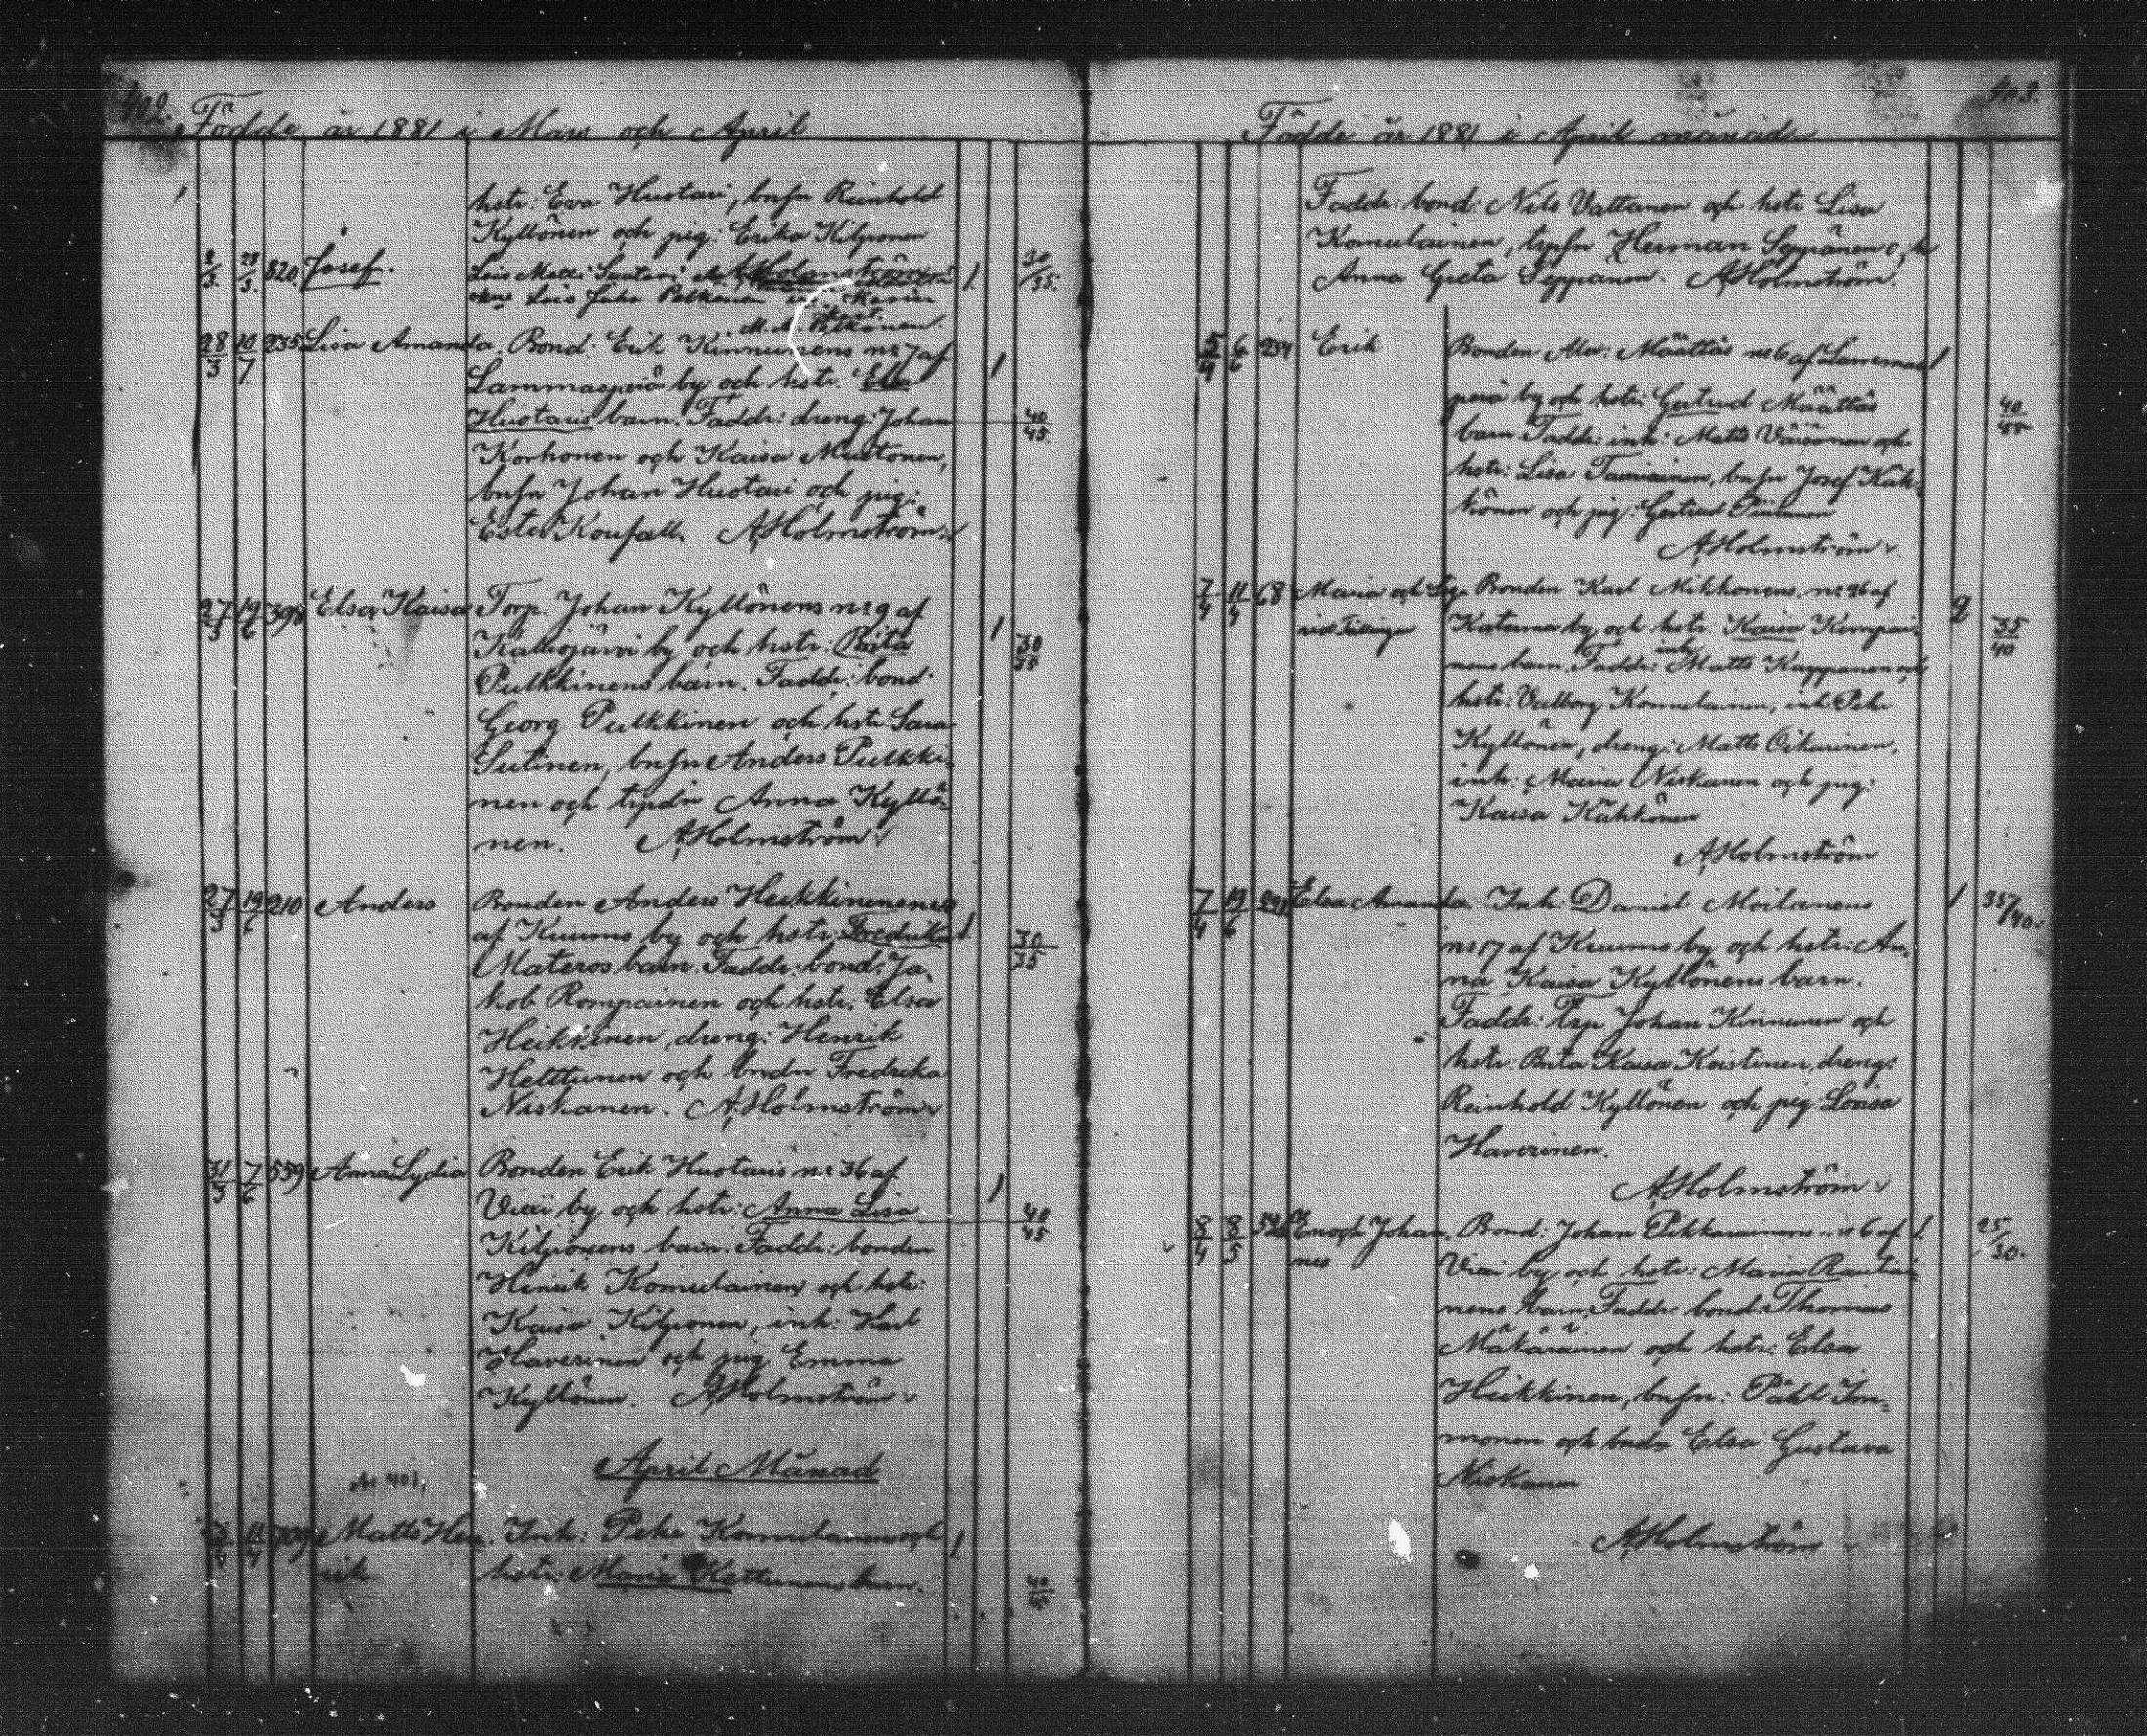 402.
Födde år 1881 i Mars och April
hstr: Eva Huotari, bnsn Reinhold
Kyllönen och pig: Erika Kilponen
2/3 28/3 820. Josef. Lois Matts A Holmström 1 30/35.
Lois
M. A. Pitkänen.
28/3 10/7 235 Lisa Amanda. Bond. Erik Kinnunens no 7 af 1
Lammasperä by och hstr. Ella
Huotaris barn. Faddr: dreng: Johan 40/45
Korhonen och Kaisa Mustonen,
bnsn Johan Huotari och pig:
Ester A Holmström
27/3 19/6 398 Elsa Kaisa Torp. Johan Kyllönens no 9 af 1
Kalliojärvi by och hstr: Brita 30/35
Pulkkinens barn. Faddr: bond.
Georg Pulkkinen och hstr Sara
Sutinen, bnsn Anders Pulkki-
nen och trpdr Anna Kyllö-
nen. A Holmström
27/3 19/6 210 Anders Bonden Anders Heikkinenens
af Kuumo by och hstr: Fredrika 1 30/35
Materos barn. Faddr: bond: Ja-
kob Rompainen och hstr. Elsa
Heikkinen, dreng: Henrik
Helttunen och bndr Fredrika
Niskanen. A Holmström
31/3 7/6 559 Anna Lydia Bonden Erik Huotaris no 36 af 1
Viai by och hstr: Anna Lisa 40/45
Kilponens barn. Faddr: bonden
Hinrik Komulainen och hstr:
Kaisa Kilponen, inh: Karl
Haverinen och pig Emma
Kyllönen. A Holmström
April Månad
No 401,
11/4 709 Matts Hen- Inh: Pehr Komulainens och 1
rik hstr: Maria Kettunens barn. 40/45
403.
Födde år 1881 i April månad
Faddr: bond: Nils Vattanen och hstr Lisa
Komulainen, trpsn Herman Seppänen och
Anna Greta Seppänen. A Holmström.
5/4 6/6 234 Erik Bonden Alex: Määttäs no 6 af Lammas- 1
perä by och hstr: Gertrud Määttäs 40/45
barn. Faddr: inh: Matts Väisänen och
hstr: Lisa Tauriainen, bnsn Josef Käh-
könen och pig: Gertrud Piirainen
A Holmström
7/4 11/4 68 Maria och Bonden Karl Mikkonens no 26 af 2
Tvillingar Katerma by och hstr. Kaisa Kempai- 35/40
nens barn. Faddr: inh Matts Kapanen och
hstr: Valborg Komulainen, inh Pehr
Kyllönen, dreng: Matts Oikarinen,
inh: Maria Niskanen och pig:
Kaisa Kähkönen
A Holmström
7/4 19/6 Elsa Amanda. Inh: Daniel Moilanens 1 35/40.
no 17 af Kuumo by och hstr: An-
na Kaisa Kyllönens barn.
Faddr: trp Johan Kinnunen och
hstr. Brita Kaisa Koistinen, dreng:
Reinhold Kyllönen och pig Lovisa
Haverinen.
A Holmström
8/4 8/5 Enoch Johan- Bond: Johan Pikkarainens no 6 af 1. 25/30.
nes Viai by och hstr: Maria Rautiai-
nens barn. Faddr bond: Thomas
Mäkäräinen och hstr: Elsa
Heikkinen, bnsn: Påhl Im-
monen och bndr Elsa Gustava
Niskanen
A Holmström